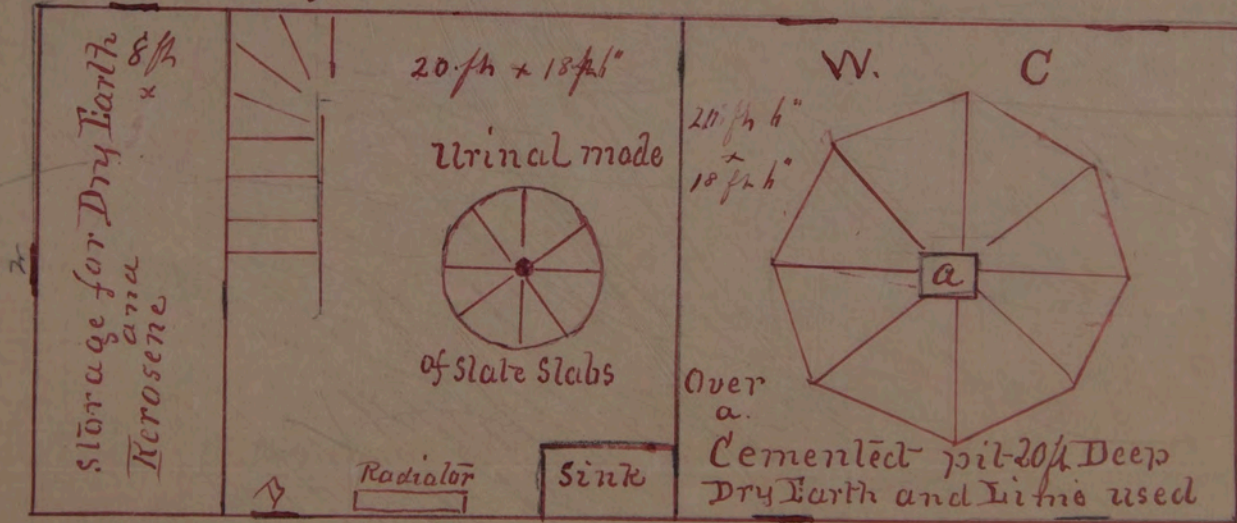 Storage for Dry Earth
and
Kerosene
8 ft
x
20 ft x 18 ft 6"
Urinal made
of Slate Slabs
Radiator
Sink
W. C
x
a
Over
a.
Cemented pit 20 ft Deep
Dry Earth and Lime used